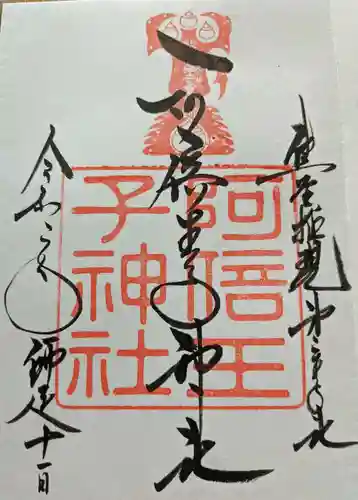 熊野権現
阿倍王子神社
令和
師走十一日
阿倍王
子神社